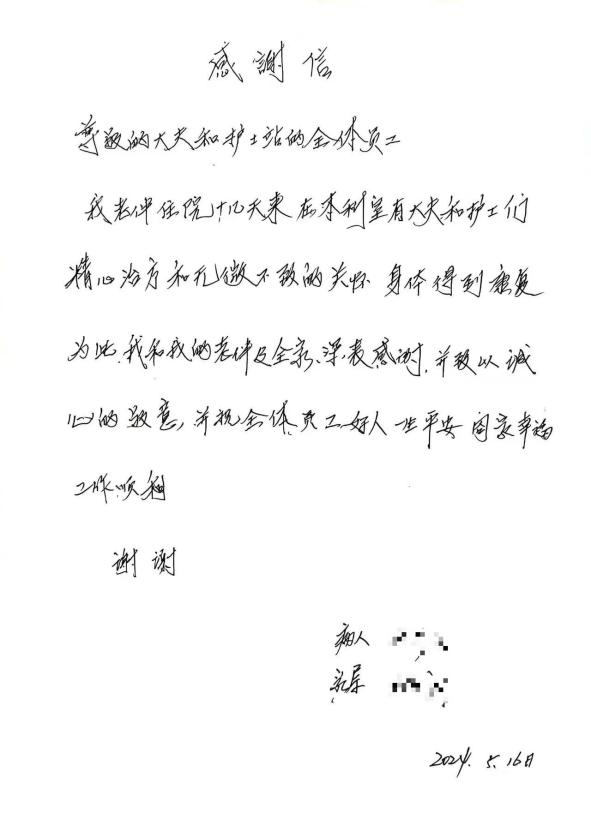 感謝信
尊敬的大夫和护士站的全体员工
我老伴住院十几天来 在本科室有大夫和护士们
精心治疗和无微不致的关怀 身体得到康复
为此,我和我的老伴及全家,深表感谢,并致以诚
心的敬意,并祝全体员工好人一生平安 阖家幸福
工作顺利
谢谢
病人
家属
2024.5.16日